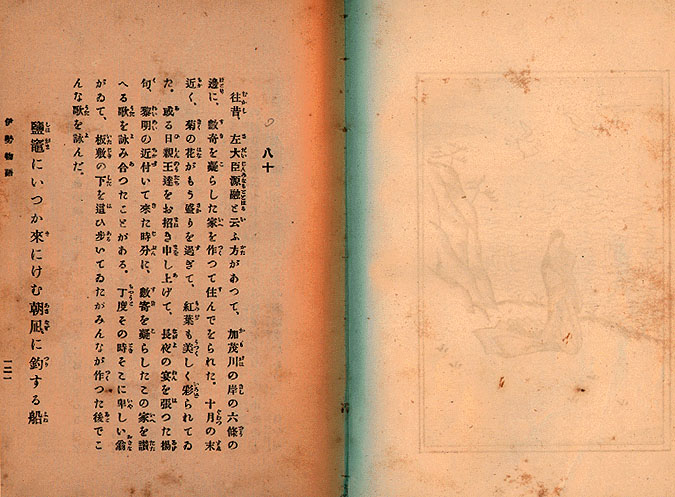 八十
往昔、左大臣源融と云ふ方があつて、加茂川の岸の六條の
邊に、數奇を凝らした家を作つて住んでをられた。十月の末
近く、菊の花がもう盛りを過ぎて、紅葉も美しく彩られてゐ
た。或る日親王達をお招き申し上げて、長夜の宴を張つた揚
句、黎明の近付いて來た時分に、數寄を凝らしたこの家を讃
へる歌を詠み合つたことがある。丁度その時そこに卑しい翁
がゐて、板敷の下を這ひ步いてゐたがみんなが作つた後でこ
んな歌を詠んだ。
鹽竈にいつか來にけむ朝凪に釣する船
伊勢物語
一二一